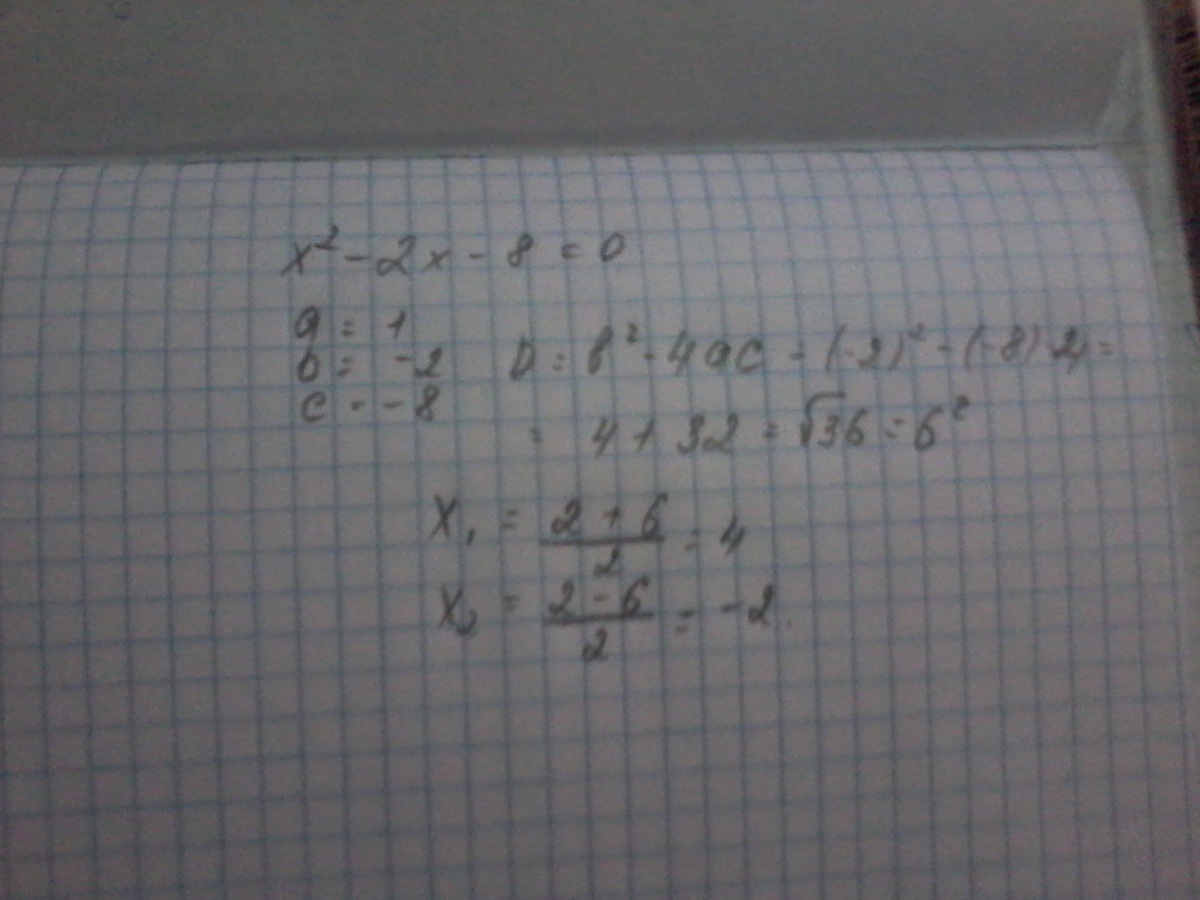 x² - 2x - 8 = 0
a = 1
b = -2 D = b² - 4ac = (-2)² - (-8)·4 =
c = -8
= 4 + 32 = √36 = 6²
x₁ = (2 + 6)/2 = 4
x₂ = (2 - 6)/2 = -2.